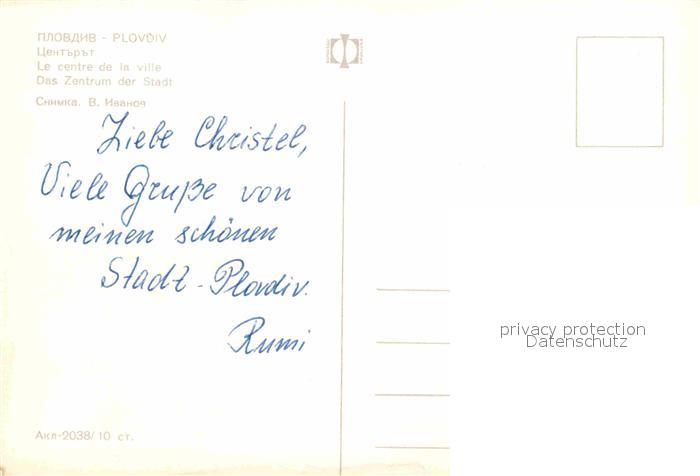 ПЛОВДИВ - PLOVDIV
Центърът
Le centre de la ville
Das Zentrum der Stadt
Снимка. В. Иванов
Liebe Christel,
Viele Gruße von
meinen schönen
Stadt - Plovdiv.
Rumi
privacy protection
Datenschutz
Акл-2038/10 ст.